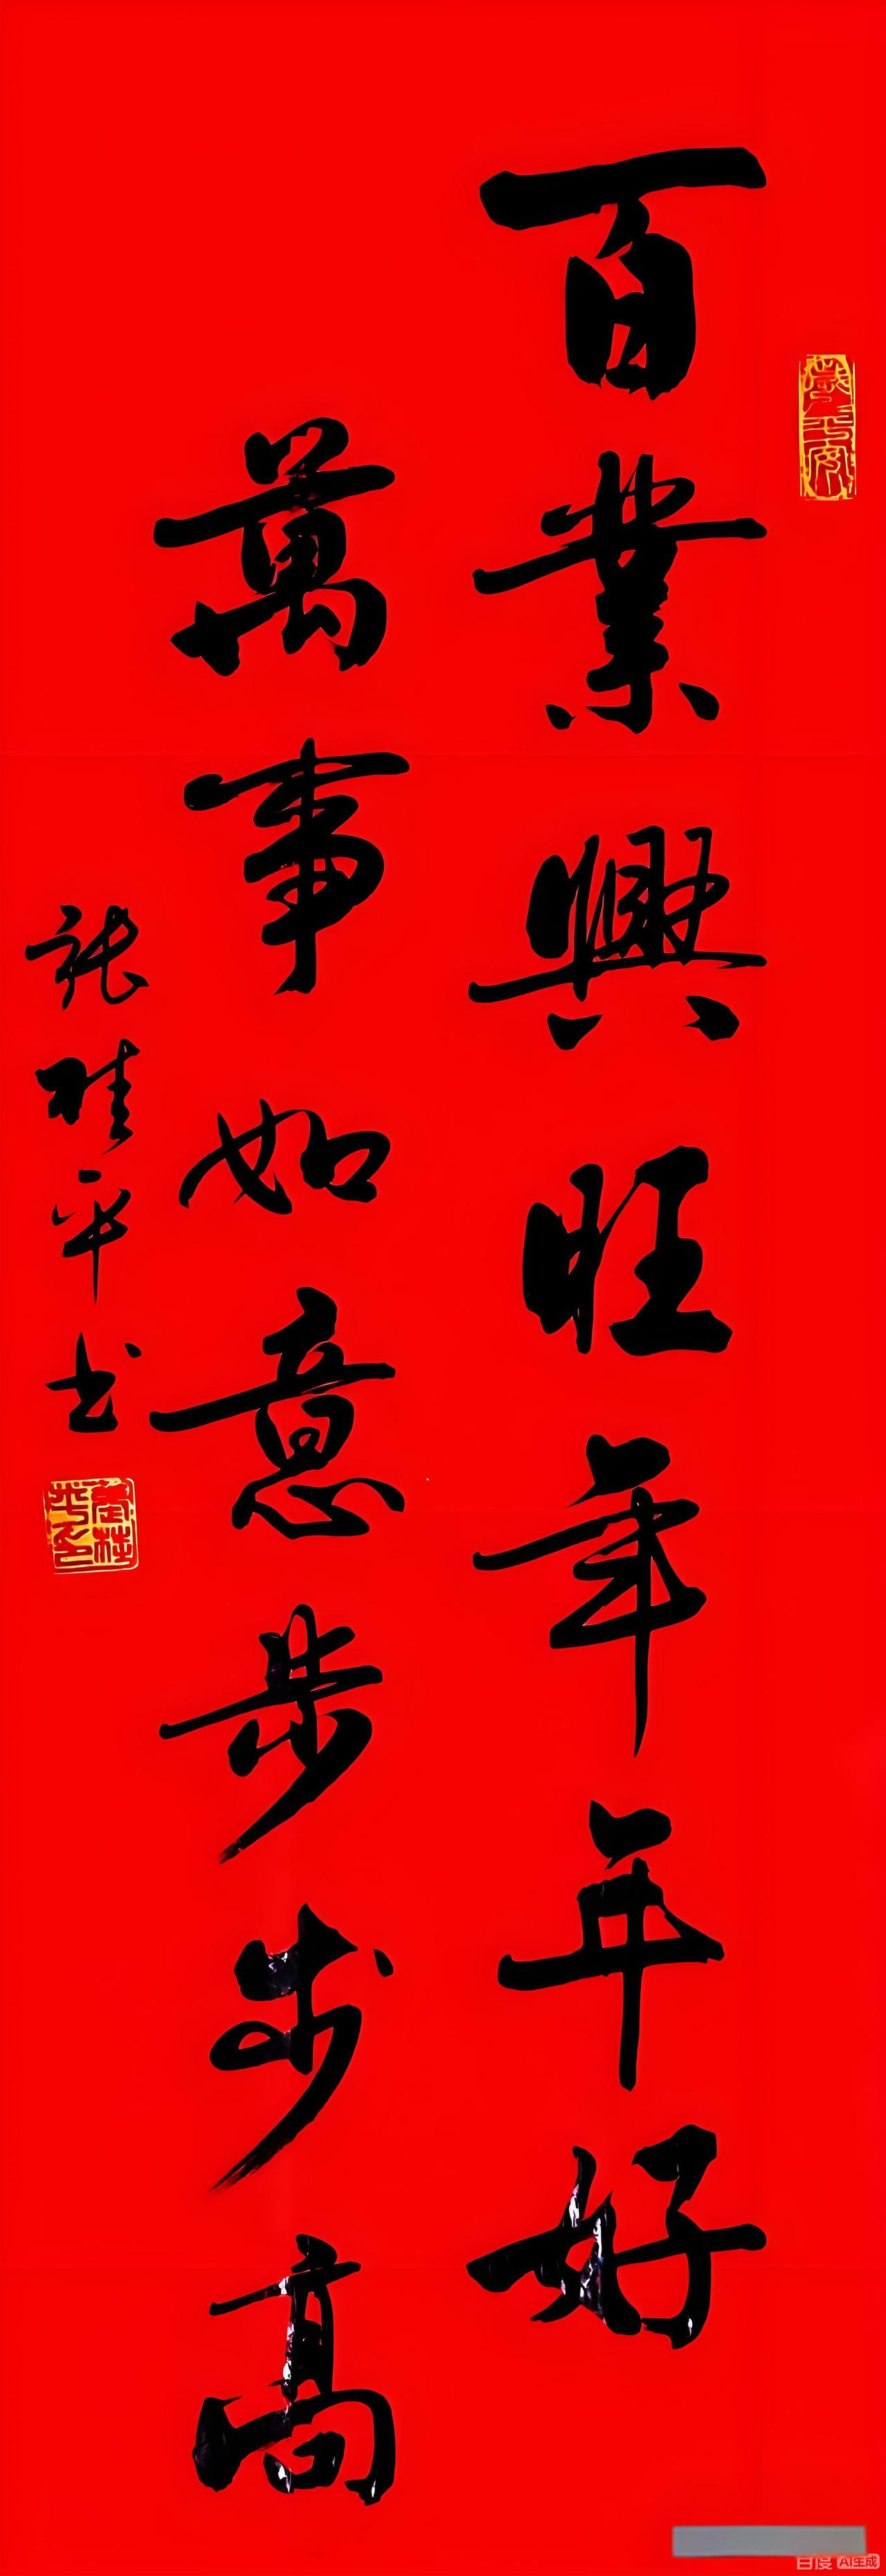 百業興旺年年好
萬事如意步步高
張桂平书
歲歲平安
百度 AI生成